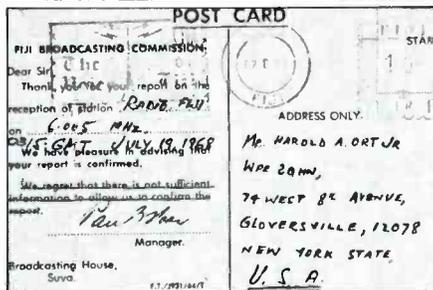 POST CARD
FIJI BROADCASTING COMMISSION
Dear Sir,
Thank you for your report on the
reception of station RADIO FIJI
on 6.005 MHz
0315 GMT JULY 19, 1968
We have pleasure in advising that
your report is confirmed.
We regret that there is not sufficient
information to allow us to confirm the
report.
Manager.
Broadcasting House,
Suva.
The
FIJI
STAM
ADDRESS ONLY
Mr HAROLD A. ORT JR
WPE 2QMW,
74 WEST 8th AVENUE,
GLOVERSVILLE, 12078
NEW YORK STATE
U.S.A.